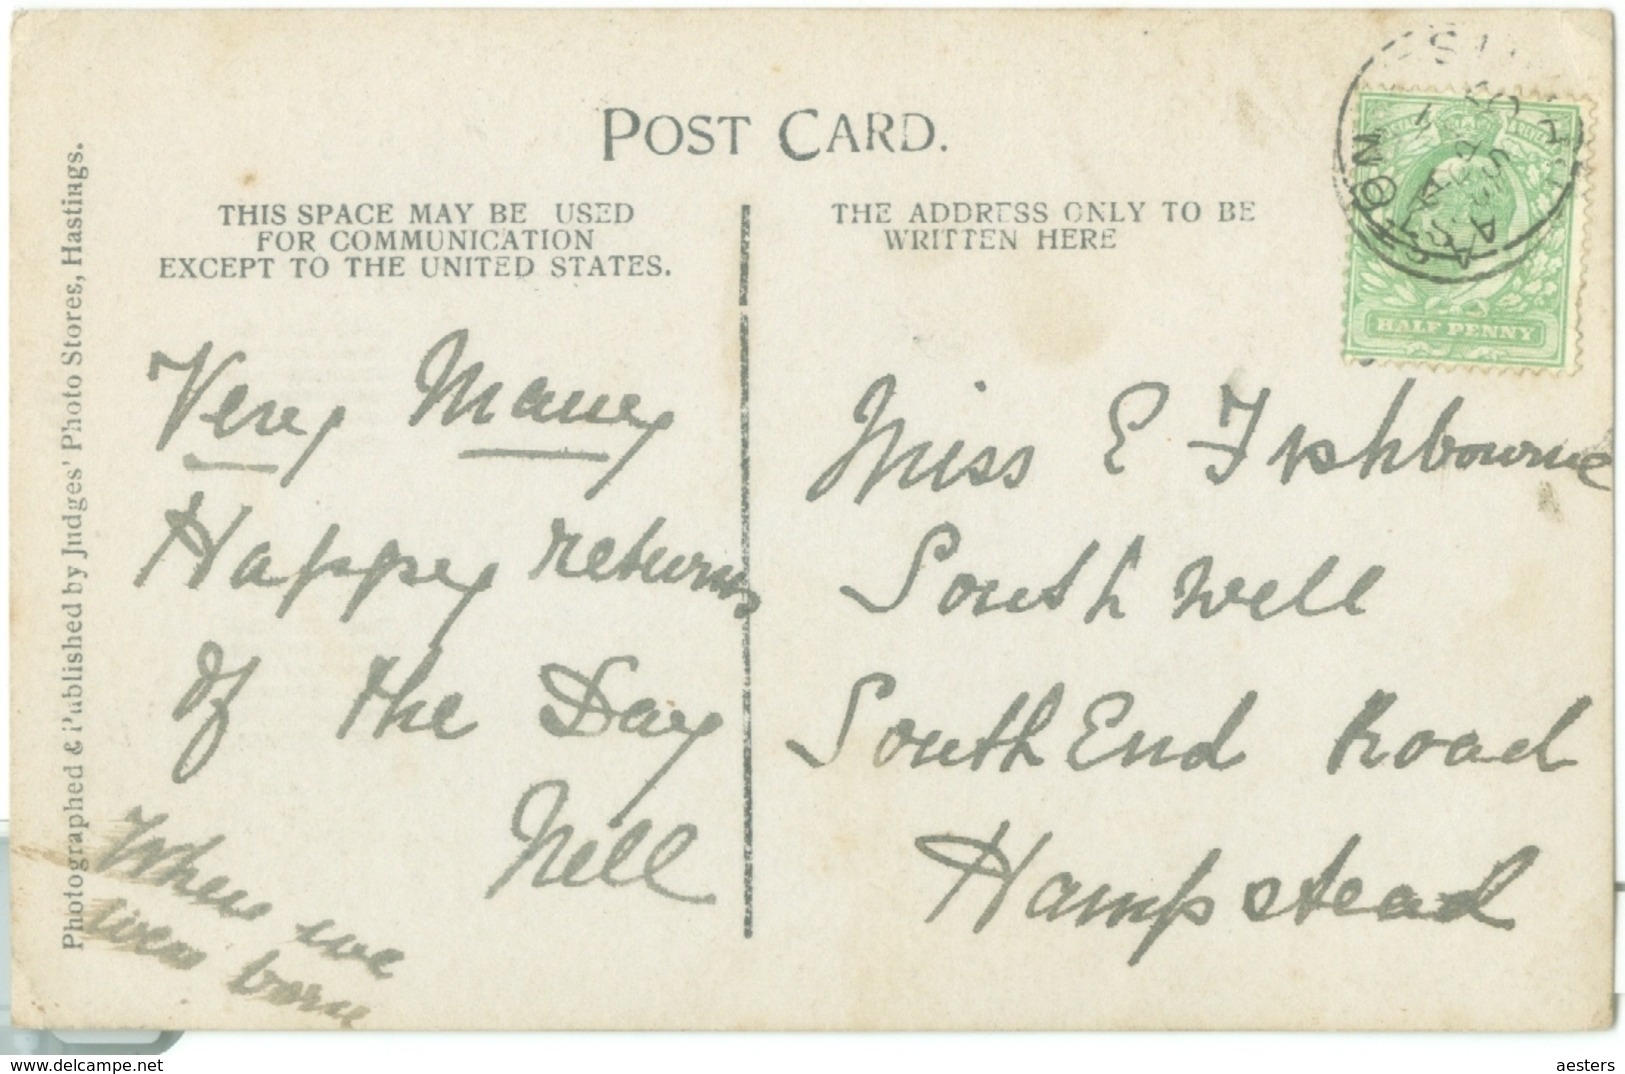 POST CARD.
THIS SPACE MAY BE USED
FOR COMMUNICATION
EXCEPT TO THE UNITED STATES.
THE ADDRESS ONLY TO BE
WRITTEN HERE
HALF PENNY
Photographed & Published by Judges' Photo Stores, Hastings.
Very Many
Happy returns
of the Day
Nell
When we
were born
Miss E Fishbourne
South Well
South End Road
Hampstead
delcampe.net
aesters